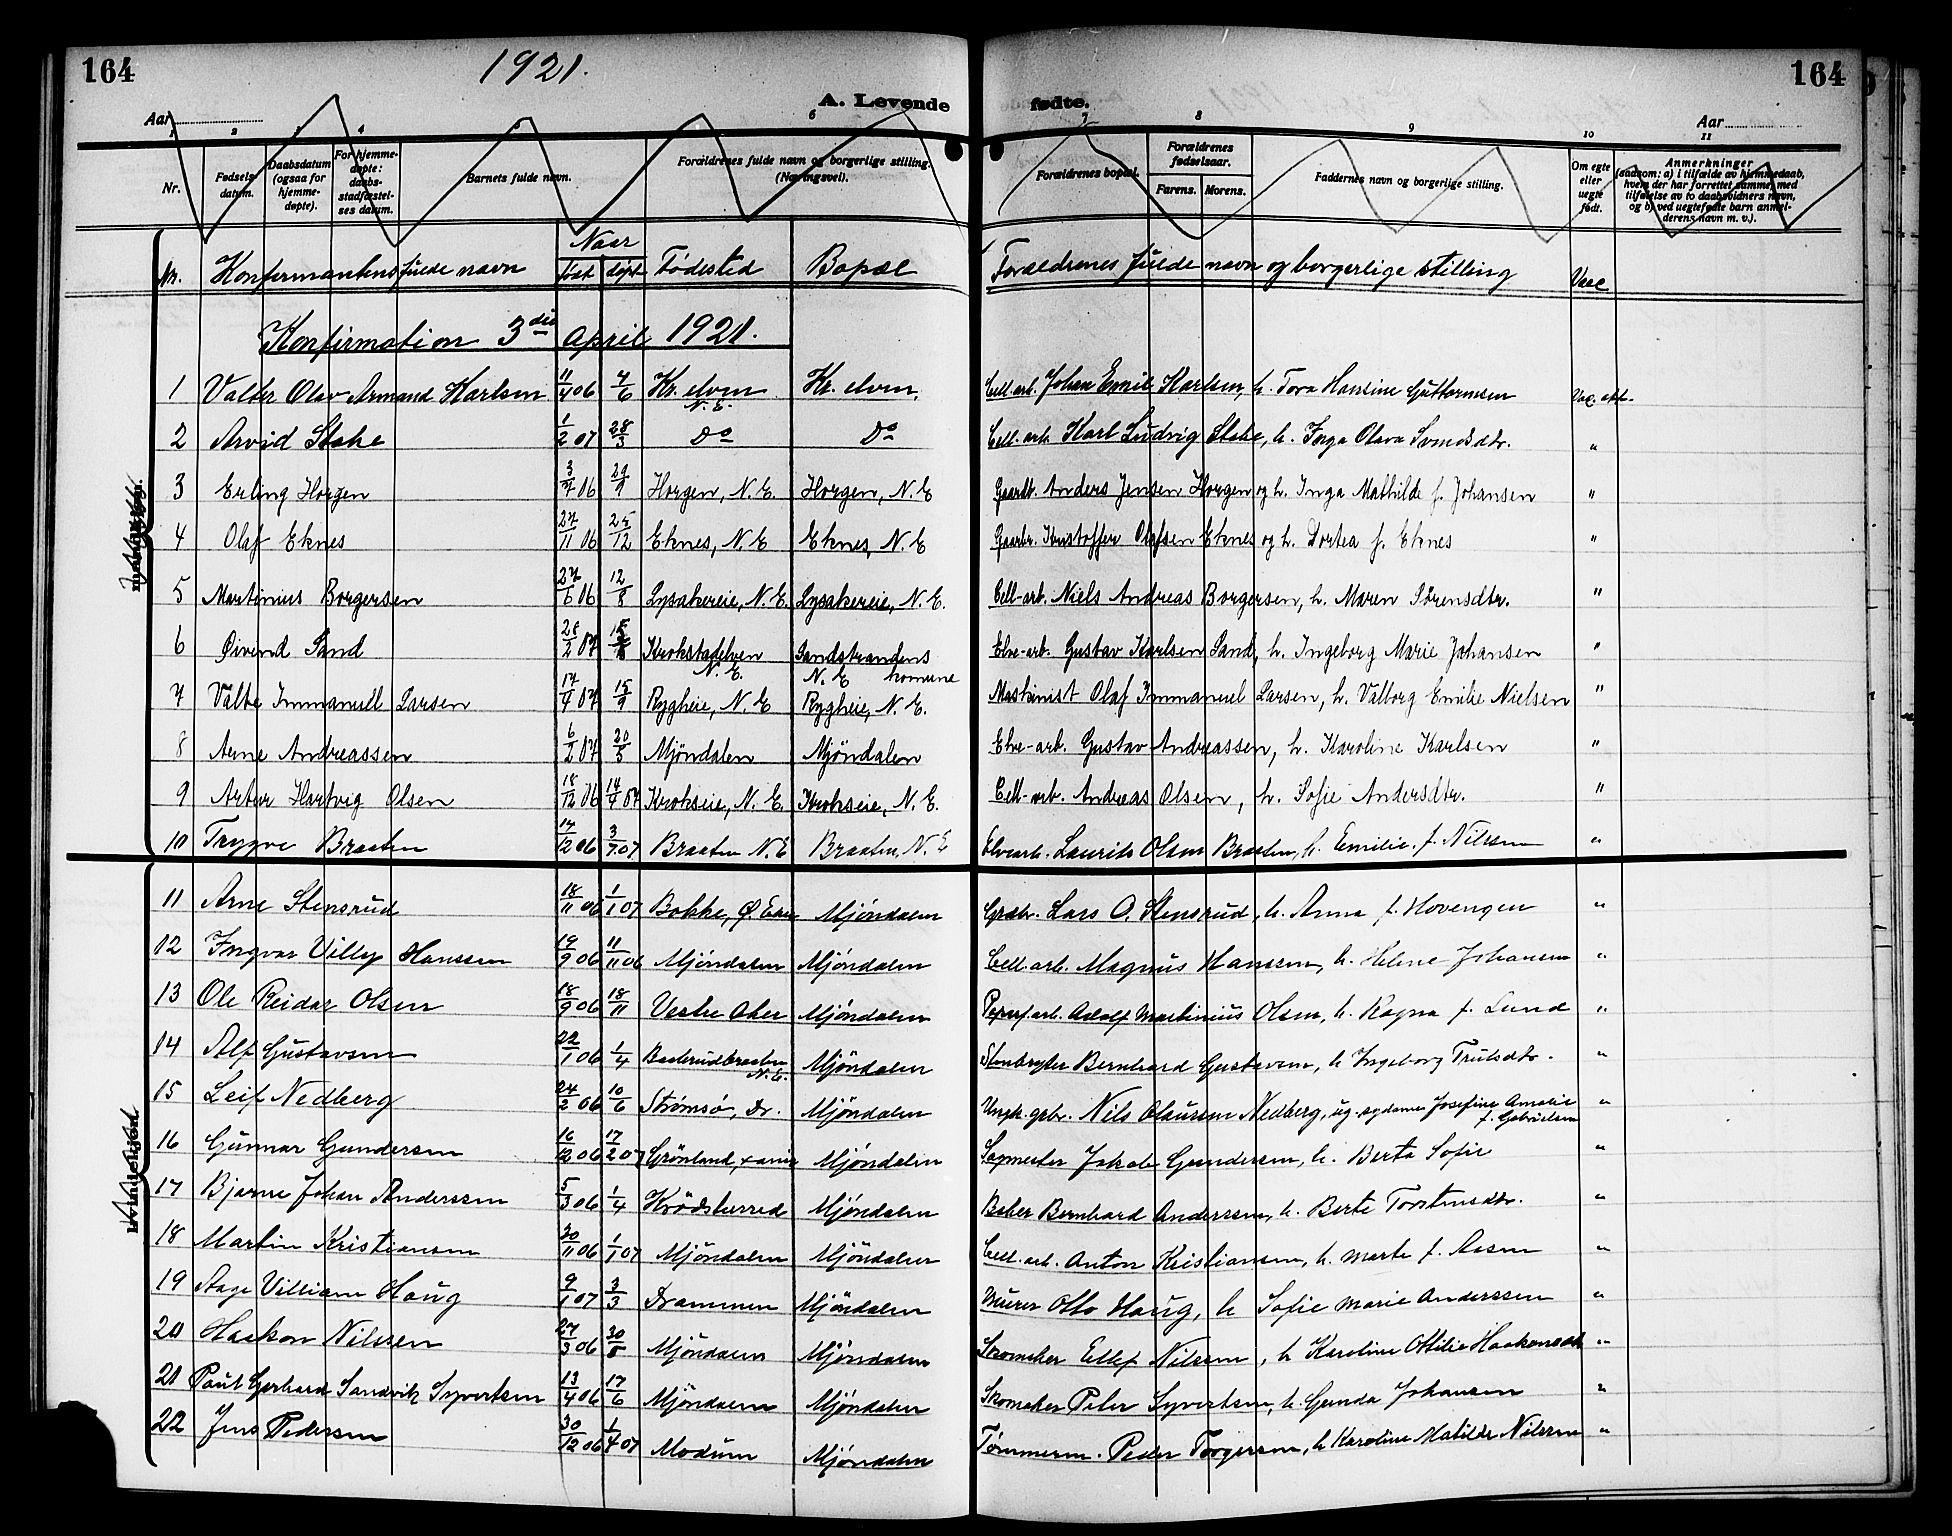 164 1921. 164
A. Levende fødte.
Aar Aar
1 2 3 4 5 6 7 8 9 10 11
Nr. Fødsels-datum. Daabsdatum (ogsaa for hjemme-døpte). For hjemme-døpte: daabs-stadfæstel-ses datum. Barnets fulde navn. Forældrenes fulde navn og borgerlige stilling. (Næringsvei). Forældrenes bopæl. Forældrenes fødselsaar. Farens. Morens. Faddernes navn og borgerlige stilling. Om egte eller uegte født. Anmerkninger (saasom: a) i tilfælde av hjemmedaab, hvem der har forrettet samme, med tilføielse av to daabsvidners navn, og b) ved uegtefødte barn anmel-derens navn m. v.).
Nr. Konfirmantens fulde navn Naar født døpt Födested Bopæl Foræeldrenes fulde navn og borgerlige stilling Vacc
Konfirmation 3die April 1921.
1 Valter Olav Armand Karlsen 11/4 06 4/6 Kr. elven N. E. Kr. elven Cell. arb. Johan Emil Karlsen, h. Tora Hansine Guttormsen Vac. att.
2 Arvid Stake 1/2 07 28/3 Do Do Cell. arb. Karl Ludvig Stake, h. Inga Olava Svendsdtr. "
3 Erling Horgen 3/7 06 29/9 Horgen, N. E. Horgen, N. E Gaardb. Anders Jensen Horgen og h. Inga Mathilde f. Johansen "
4 Olaf Eknes 27/11 06 25/12 Eknes, N. E Eknes, N. E Gaarbr. Kristoffer Olafsen Eknes og h. Dortea f. Eknes "
5 Martinius Borgersen 27/6 06 12/8 Lysakereie, N. E. Lysakereie, N. E. Cell-arb. Niels Andreas Borgersen, h. Maren Sörensdtr. "
6 Øivind Sand 28/2 07 Krokstadelven N. E. Sandstrandens N. E komune Elve-arb. Gustav Karlsen Sand, h. Ingeborg Marie Johansen "
7 Valte Immanuell Larsen 17/4 07 15/9 Rygheie, N. E Rygheie, N. E. Maskinist Olaf Immanuel Larsen, h. Valborg Emilie Nielsen "
8 Arne Andreassen 6/2 07 20/5 Mjöndalen Mjöndalen Elve-arb. Gustav Andreassen, h. Karoline Karlsen "
9 Artur Hartvig Olsen 18/12 06 14/4 07 Krokseie, N. E. Krokseie, N. E. Cell-arb. Andreas Olsen, h. Sofie Andersdtr. "
10 Trygve Braaten 14/12 06 3/7 07 Braaten N. E Braaten, N. E Elvearb. Laurits Olsen Braaten, h. Emilie f. Nilsen "
11 Arne Stensrud 18/11 06 1/1 07 Bakke, Ø. Eker Mjöndalen Grdbr. Lars O. Stensrud, h. Anna f. Hovengen "
12 Ingvar Villy Hanssen 19/9 06 11/11 06 Mjöndalen Mjöndalen Cell. arb. Magnus Hanssen, h. Helene Johansen "
13 Ole Reidar Olsen 18/9 06 18/11 Vestre Aker Mjöndalen Papirf. arb. Adolf Martinius Olsen, h. Ragna f. Lund "
14 Alf Gustavsen 22/1 06 1/4 N. E. Mjöndalen Stenbryter Bernhard Gustavsen, h. Ingeborg Trulsdtr. "
15 Leif Nedberg 24/2 06 10/6 Strømsø, Dr. Mjöndalen Ungk. grbr. Nils Olaussen Nedberg, ug. sydame Josefine Amalie f. Gabrielsen "
16 Gunnar Gundersen 16/12 06 17/2 07 Grönland, Mjöndalen Sagmester Jakob Gundersen, h. Berta Sofie "
17 Bjarne Johan Anderssen 5/3 06 1/4 Krödsherred Mjöndalen Baker Bernhard Anderssen, h. Berte Torstensdtr. "
18 Martin Kristiansen 30/11 06 1/1 07 Mjöndalen Mjöndalen Cell. arb. Anton Kristiansen, h. Marte f. Aasen "
19 Aage Villiam Haug 9/1 07 3/3 Drammen Mjöndalen Murer Otto Haug, h. Sofie Marie Anderssen "
20 Haakon Nilssen 27/3 06 30/ Mjöndalen Mjöndalen Skomaker Ellef Nilssen, h. Karoline Ottilie Haakonsdtr "
21 Paul Gerhard Sandvik Syvertsen 13/4 06 17/6 Mjöndalen Mjöndalen Skomaker Peter Syvertsen, h. Gunda Johansen "
22 Jens Pedersen 30/12 06 1/4 07 Modum Mjöndalen Tømmerm. Peder Torgersen, h. Karoline Matilde Nilssen "